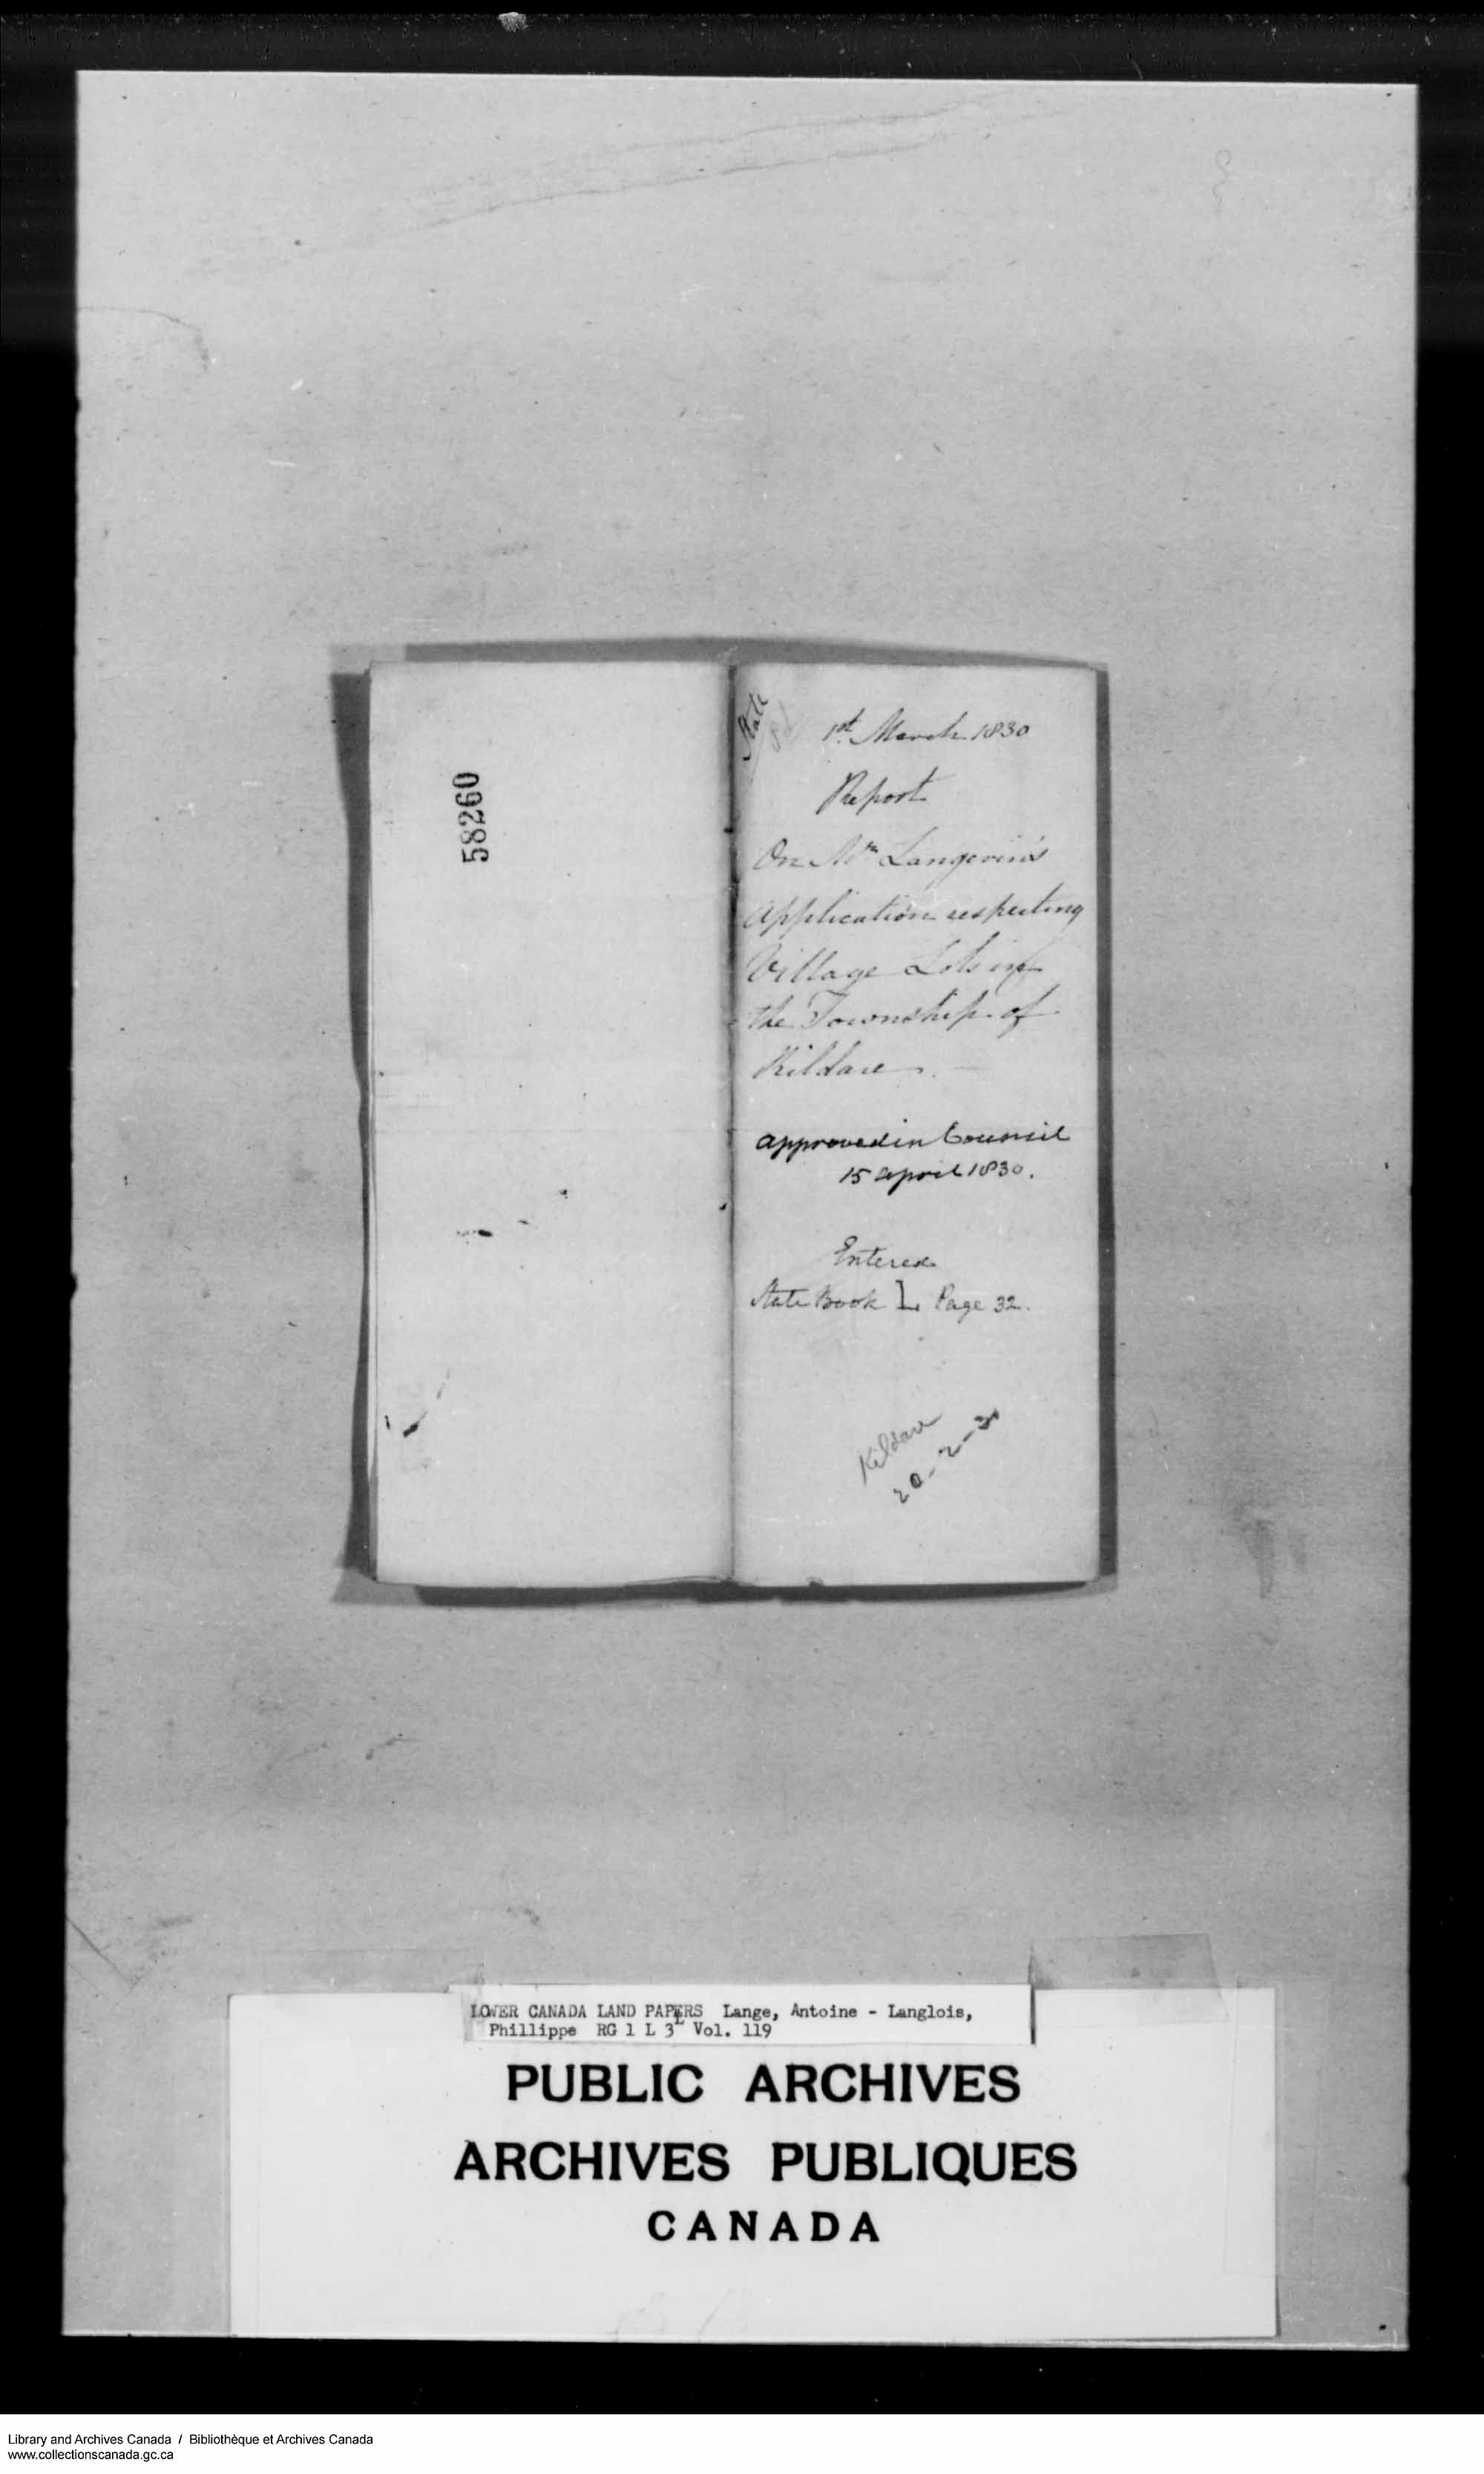 58260
State
1st March 1830
Report
On Mr Langevin's
Application respecting
Village Lots in
the Township of
Kildare.
approved in Council
15 april 1830.
Entered
State Book L Page 32.
Kildare
20-2-30
LOWER CANADA LAND PAPERS Lange, Antoine - Langlois,
Phillippe RG 1 L 3L Vol. 119
PUBLIC ARCHIVES
ARCHIVES PUBLIQUES
CANADA
Library and Archives Canada / Bibliothèque et Archives Canada
www.collectionscanada.gc.ca